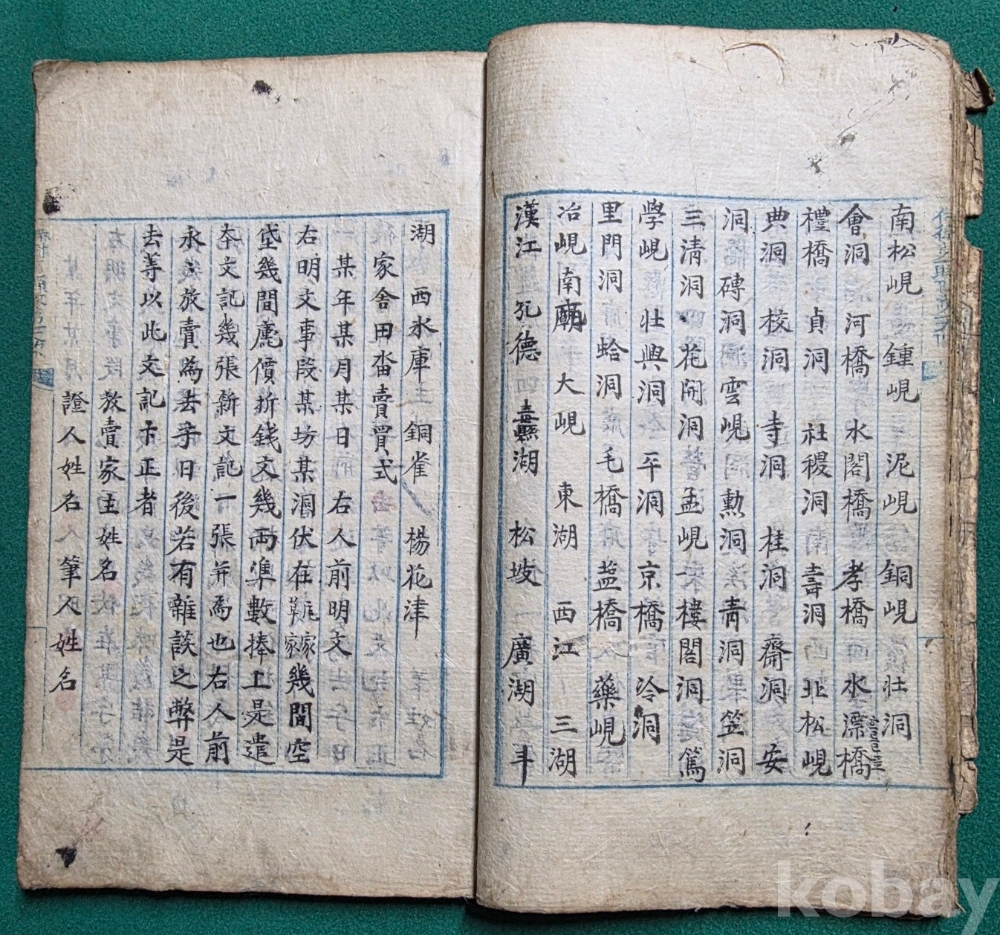 南松峴 鍾峴 泥峴 銅峴 壯洞
會洞 河橋 水閣橋 孝橋 水漂橋
禮橋 貞洞 社稷洞 壽洞 北松峴
典洞 校洞 寺洞 桂洞 齋洞 安
洞 磚洞 雲峴 勲洞 青洞 笠洞
三清洞 花開洞 孟峴 樓閣洞 篤
學峴 壯興洞 平洞 京橋 冷洞
里門洞 蛤洞 毛橋 益橋 藥峴
冶峴 南廟 大峴 東湖 西江 三湖
漢江 孔德 纛湖 松坡 廣湖 斗
湖 西氷庫 銅雀 楊花津
家舍田畓賣買式
某年某月某日 右人前明文
右明文事段某坊某洞伏在 家幾間空
垈幾間廤價折錢文幾兩準數捧上是遣
夲文記幾張新文記一張并爲也右人前
永永放賣爲去乎日後若有雜談之弊是
去等以此文記卞正者
放賣家主姓名
證人姓名 筆人姓名
kobay